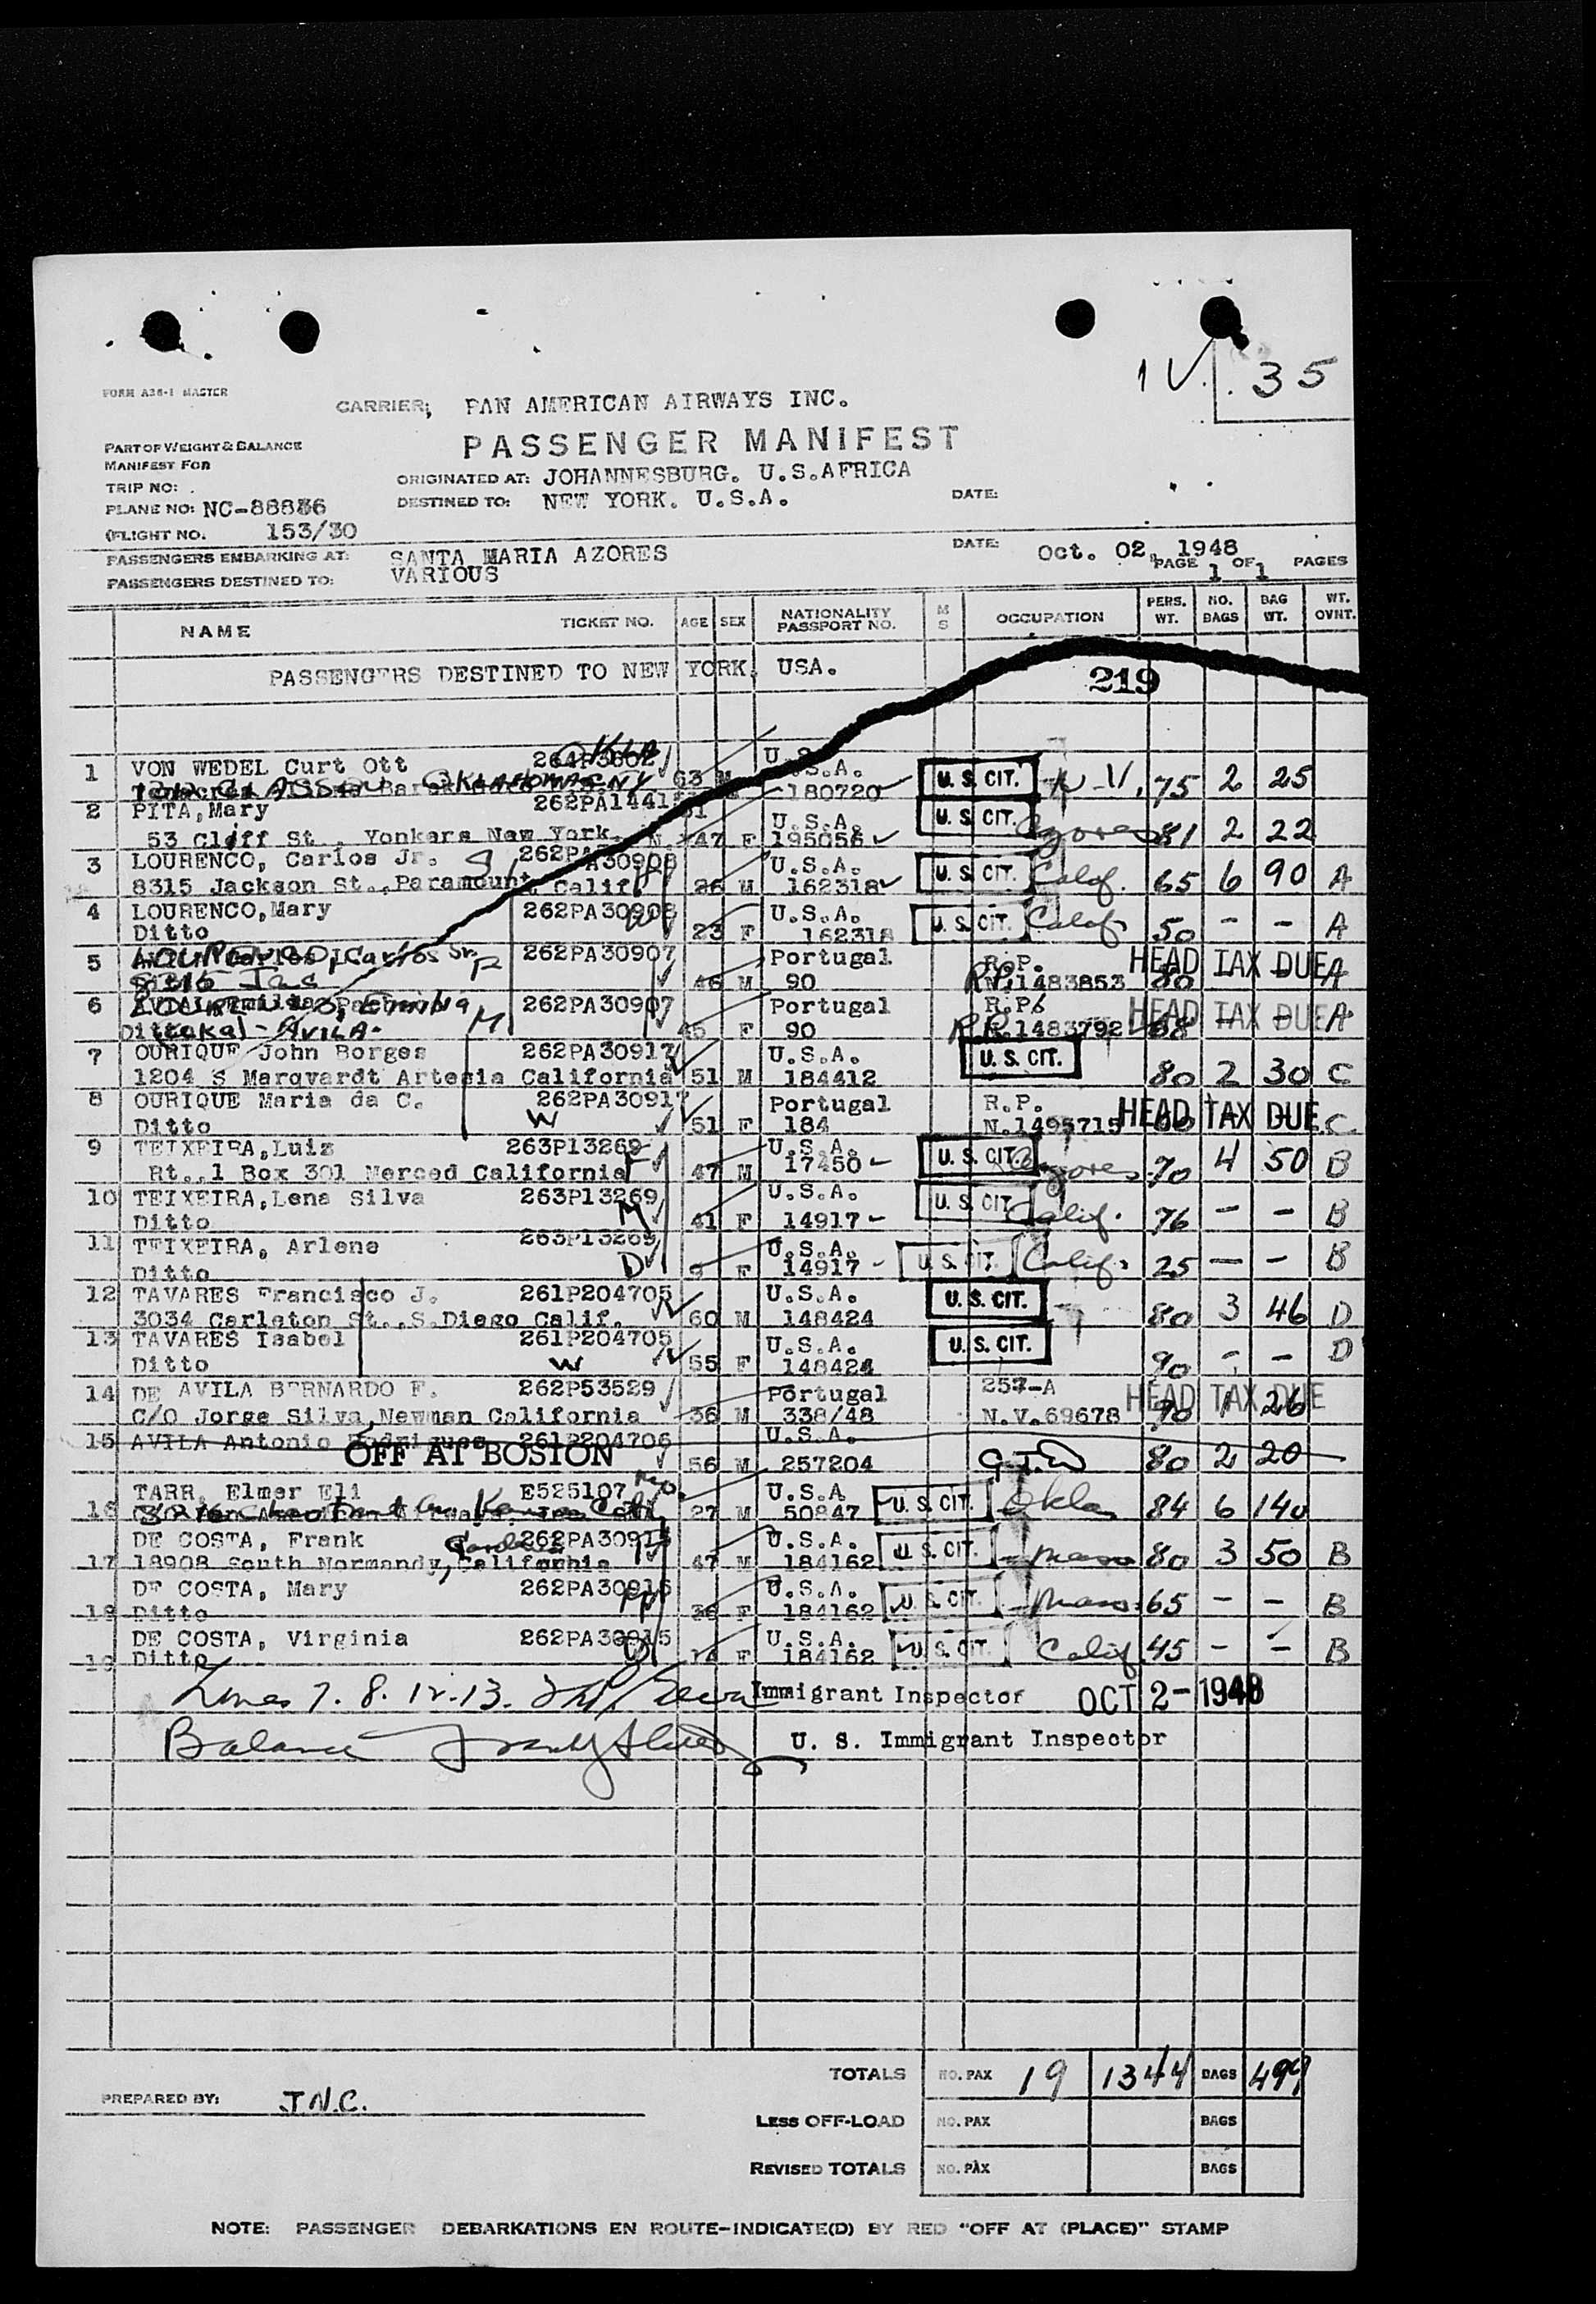 1 V. 35
FORM A36-1 MASTER
CARRIER; PAN AMERICAN AIRWAYS INC.
PASSENGER MANIFEST
PART OF WEIGHT & BALANCE
MANIFEST FOR
ORIGINATED AT: JOHANNESBURG. U.S.AFRICA
TRIP NO:
DESTINED TO: NEW YORK. U.S.A. DATE:
PLANE NO: NC-88836
(FLIGHT NO. 153/30
PASSENGERS EMBARKING AT: SANTA MARIA AZORES DATE: Oct. 02, 1948
PASSENGERS DESTINED TO: VARIOUS PAGE 1 OF 1 PAGES
NAME TICKET NO. AGE SEX NATIONALITY PASSPORT NO. M S OCCUPATION PERS. WT. NO. BAGS BAG WT. WT. OVNT.
PASSENGERS DESTINED TO NEW YORK, USA.
219
1 VON WEDEL Curt Ott U.S.A.
OKLAHOMA 63 M 180720 U. S. CIT. N.Y. 75 2 25
2 PITA, Mary 262PA1441 U.S.A. U. S. CIT.
53 Cliff St., Yonkers New York. 47 F 195056 Azores 81 2 22
3 LOURENCO, Carlos Jr. S 262PA30908 U.S.A.
8315 Jackson St., Paramount Calif. 26 M 162318 U. S. CIT. Calif. 65 6 90 A
4 LOURENCO, Mary 262PA30908 U.S.A.
Ditto W 23 F 162318 U. S. CIT. Calif. 50 - - A
5 Carlos Sr. 262PA30907 Portugal R.P. HEAD TAX DUE
46 M 90 N.1483853 80 - - A
6 262PA30907 Portugal R.P. HEAD TAX DUE
Ditto AVILA M 45 F 90 N.1483792 68 - - A
7 OURIQUE John Borges 262PA30917 U.S.A. U. S. CIT.
1204 S Marqvardt Artesia California 51 M 184412 80 2 30 C
8 OURIQUE Maria da C. 262PA30917 Portugal R.P. HEAD TAX DUE
Ditto W 51 F 184 N.1495715 C
9 TEIXEIRA, Luiz 263P13269 U.S.A.
Rt., 1 Box 301 Merced California 47 M 17450 U. S. CIT. Azores 70 4 50 B
10 TEIXEIRA, Lena Silva 263P13269 U.S.A.
Ditto M 41 F 14917 U. S. CIT. Calif. 76 - - B
11 TEIXEIRA, Arlene 263P13269 U.S.A.
Ditto D 9 F 14917 U. S. CIT. Calif. 25 - - B
12 TAVARES Francisco J. 261P204705 U.S.A. U. S. CIT.
3034 Carleton St., S.Diego Calif. 60 M 148424 80 3 46 D
13 TAVARES Isabel 261P204705 U.S.A. U. S. CIT.
Ditto W 55 F 148424 90 - - D
14 DE AVILA BERNARDO F. 262P53529 Portugal 257-A HEAD TAX DUE
C/O Jorge Silva, Newman California 36 M 338/48 N.V.69678 90 1 26
15 AVILA Antonio Rodrigues 261P204706 U.S.A.
OFF AT BOSTON 56 M 257204 80 2 20
TARR, Elmer Eli E525107 U.S.A
16 27 M 50847 U. S. CIT. Okla 84 6 140
DE COSTA, Frank 262PA30915 U.S.A.
17 18908 South Normandy, California 47 M 184162 U. S. CIT. Mass 80 3 50 B
DE COSTA, Mary 262PA30916 U.S.A.
18 Ditto 36 F 184162 U. S. CIT. Mass 65 - - B
DE COSTA, Virginia 262PA30915 U.S.A.
19 Ditto D 14 F 184162 U. S. CIT. Calif 45 - - B
Lines 7. 8. 12-13. Immigrant Inspector OCT 2-1948
Balance U. S. Immigrant Inspector
TOTALS NO. PAX 19 1344 BAGS 499
PREPARED BY: J.N.C.
LESS OFF-LOAD NO. PAX BAGS
REVISED TOTALS NO. PAX BAGS
NOTE: PASSENGER DEBARKATIONS EN ROUTE-INDICATE(D) BY RED "OFF AT (PLACE)" STAMP